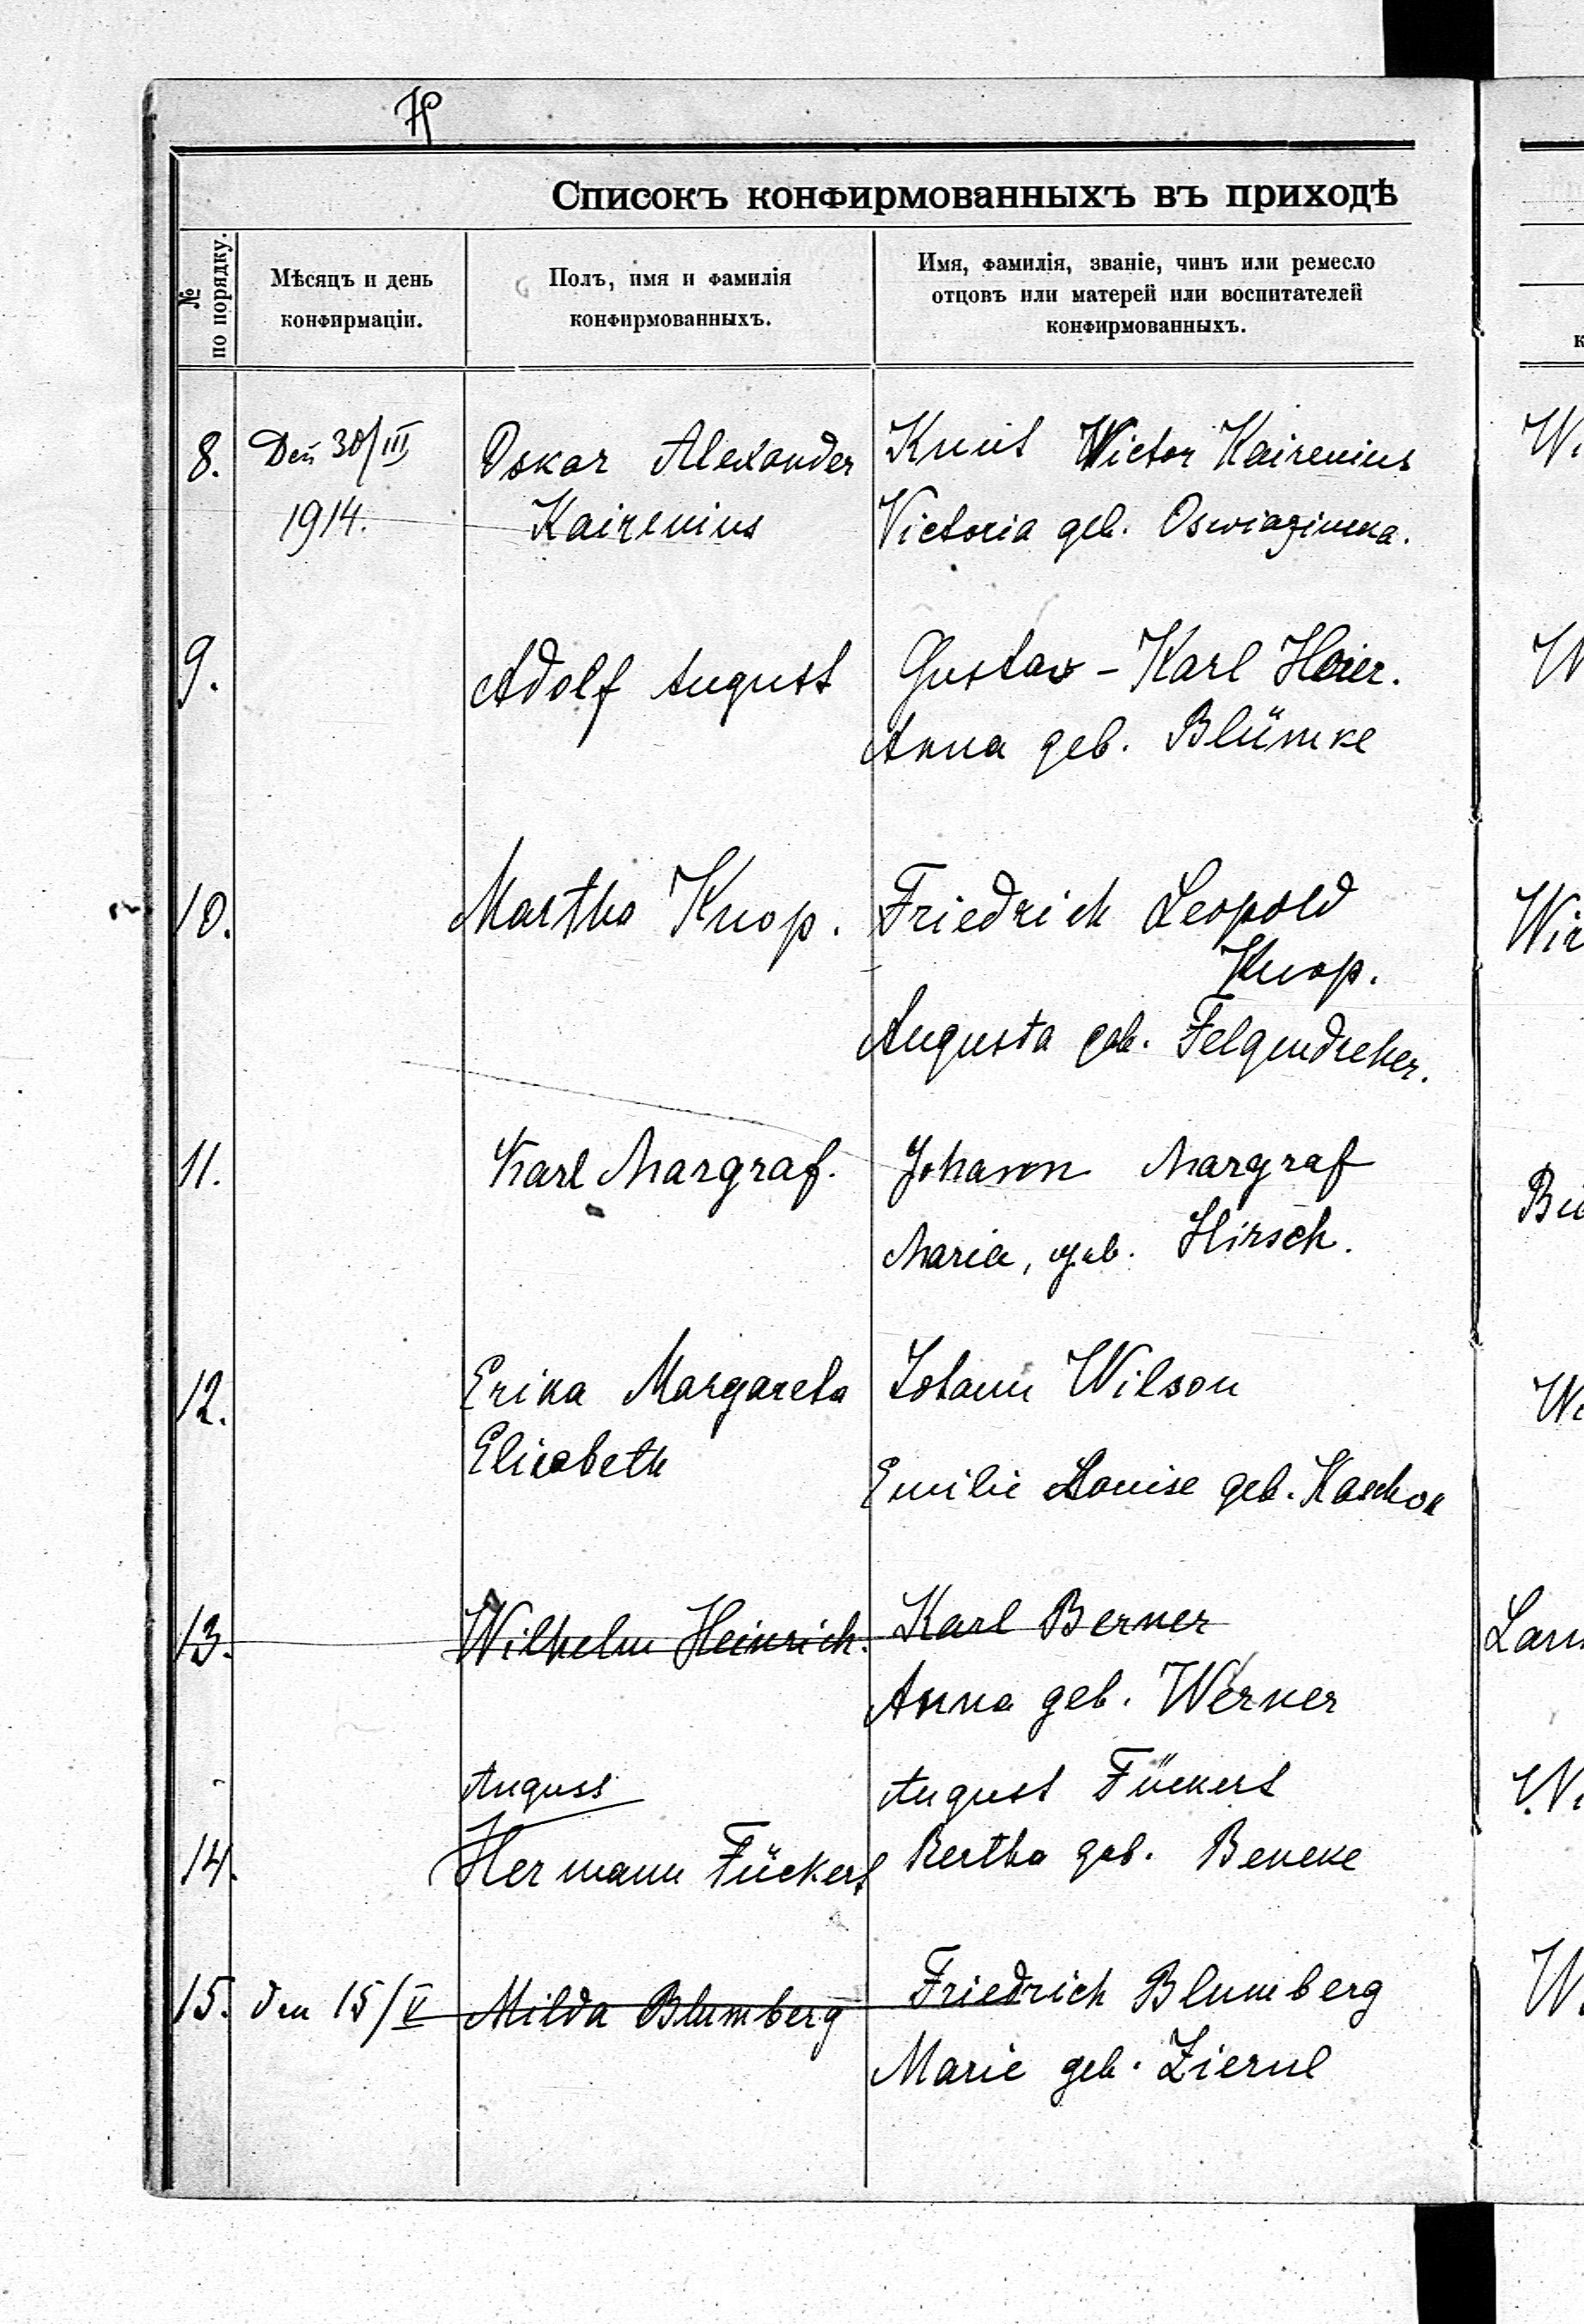 Списокъ конфирмованныхъ въ приходѣ
№ по порядку.
Мѣсяцъ и день
конфирмаціи.
Полъ, имя и фамилія
конфирмованныхъ.
Имя, фамилія, званіе, чинъ или ремесло
отцовъ или матерей или воспитателей
конфирмованныхъ.
8. Den 30/III Oskar Alexander Knut Victor Kairenius
1914. Kairenius Victoria geb. Oswiazimska.
9. Adolf August Gustav - Karl Hoier.
Anna geb. Blümke
10. Martha Knop. Friedrich Leopold
Knop.
Augusta geb. Felgendreher.
11. Karl Margraf. Johann Margraf
Maria, geb. Hirsch.
12. Erika Margareta Johann Wilson
Elisabeth
Emilie Louise geb. Kaschok
13. Wilhelm Heinrich. Karl Berner
Anna geb. Werner
August August Fückert
14. Hermann Fückert Bertha geb. Beneke
15. den 15/V Milda Blumberg Friedrich Blumberg
Marie geb. Zierul